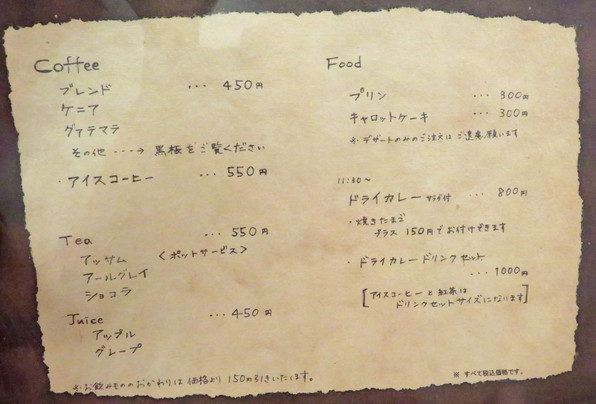 Coffee
ブレンド ... 450円
ケニア
グァテマラ
その他 ---→ 黒板をご覧ください
・アイスコーヒー ... 550円
Tea ... 550円
アッサム <ポットサービス>
アールグレイ
ショコラ
Juice ... 450円
アップル
グレープ
※お飲みもののおかわりは価格より150円引きいたします。
Food
プリン ... 300円
キャロットケーキ ... 300円
※デザートのみのご注文はご遠慮願います
11:30〜
ドライカレー サラダ付 ... 800円
・焼きたまご
プラス 150円でお付けできます
・ドライカレードリンクセット
... 1000円
[アイスコーヒーと紅茶は
ドリンクセットサイズになります]
※ すべて税込価格です。